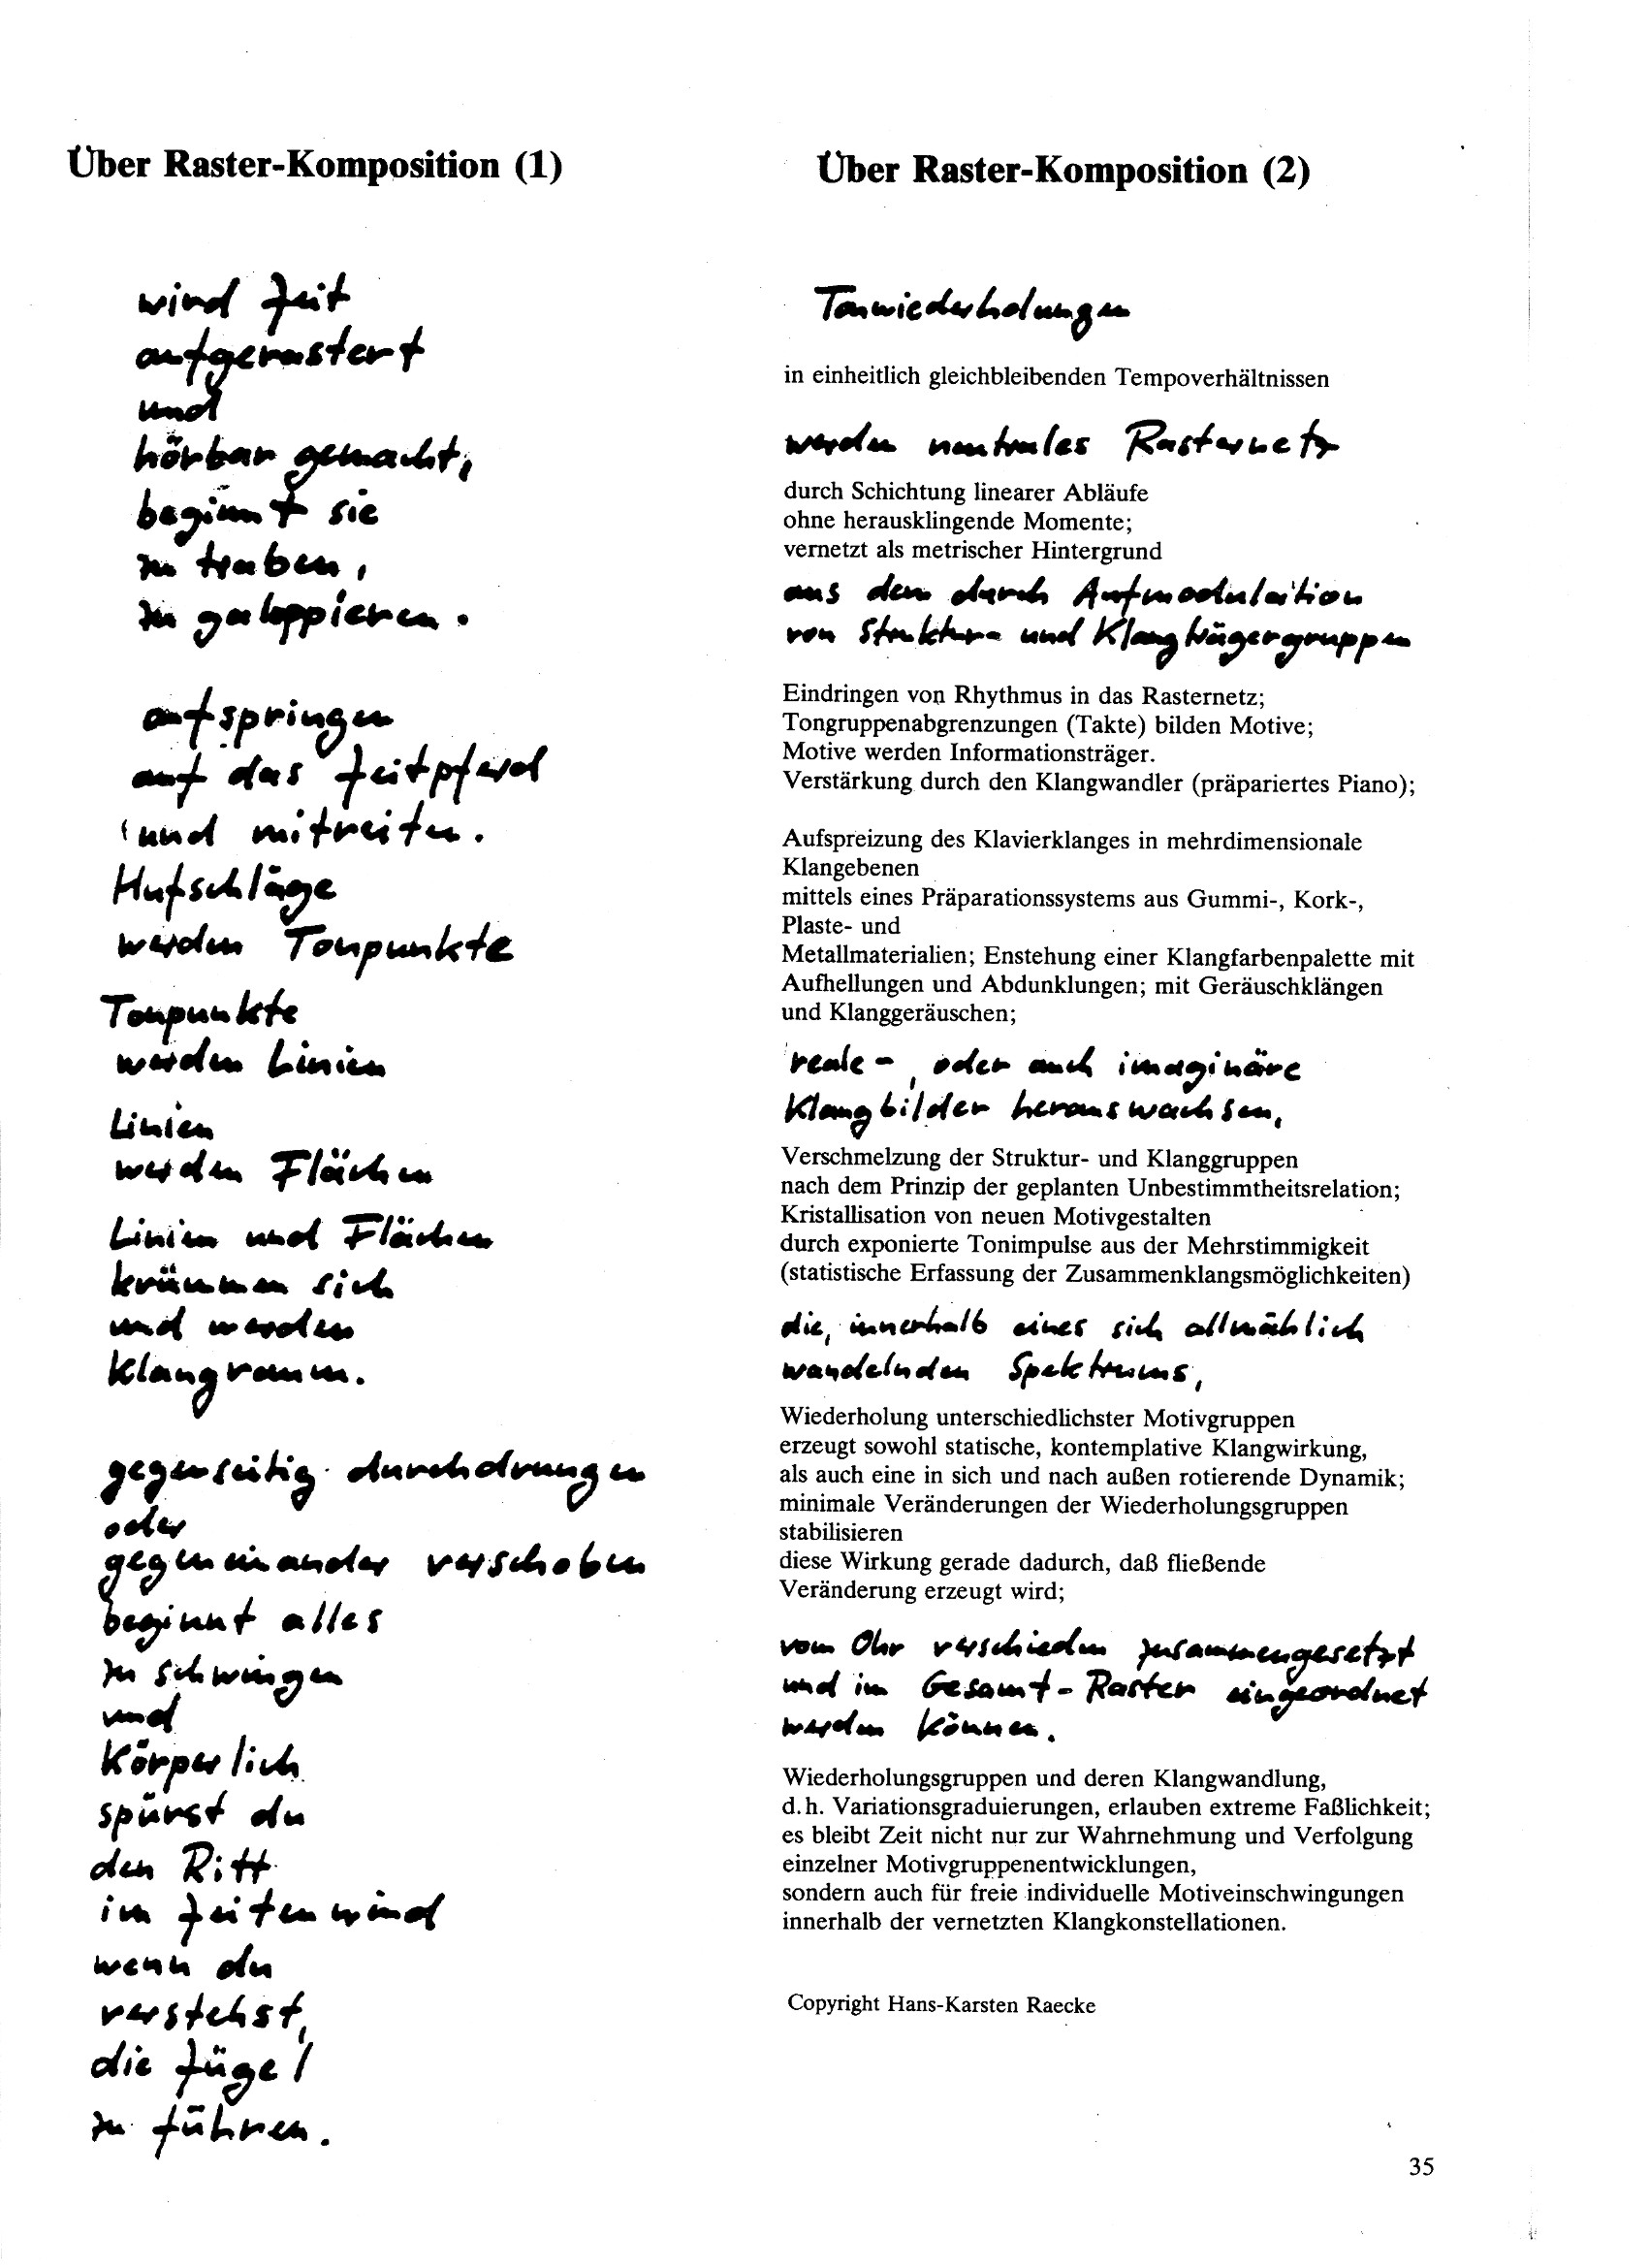 Über Raster-Komposition (1)
wird Zeit
aufgerastert
und
hörbar gemacht,
beginnt sie
zu traben,
zu galoppieren.
aufspringen
auf das Zeitpferd
und mitreiten.
Hufschläge
werden Tonpunkte
Tonpunkte
werden Linien
Linien
werden Flächen
Linien und Flächen
krümmen sich
und werden
Klangraum.
gegenseitig durchdrungen
oder
gegeneinander verschoben
beginnt alles
zu schwingen
und
Körperlich
spürst du
den Ritt
im Zeitenwind
wenn du
verstehst,
die Zügel
zu führen.
Über Raster-Komposition (2)
Tonwiederholungen
in einheitlich gleichbleibenden Tempoverhältnissen
werden neutrales Rasternetz
durch Schichtung linearer Abläufe
ohne herausklingende Momente;
vernetzt als metrischer Hintergrund
aus dem durch Aufmodulation
von Struktur- und Klangträgergruppen
Eindringen von Rhythmus in das Rasternetz;
Tongruppenabgrenzungen (Takte) bilden Motive;
Motive werden Informationsträger.
Verstärkung durch den Klangwandler (präpariertes Piano);
Aufspreizung des Klavierklanges in mehrdimensionale
Klangebenen
mittels eines Präparationssystems aus Gummi-, Kork-,
Plaste- und
Metallmaterialien; Enstehung einer Klangfarbenpalette mit
Aufhellungen und Abdunklungen; mit Geräuschklängen
und Klanggeräuschen;
reale-, oder auch imaginäre
Klangbilder herauswachsen,
Verschmelzung der Struktur- und Klanggruppen
nach dem Prinzip der geplanten Unbestimmtheitsrelation;
Kristallisation von neuen Motivgestalten
durch exponierte Tonimpulse aus der Mehrstimmigkeit
(statistische Erfassung der Zusammenklangsmöglichkeiten)
die, innerhalb eines sich allmählich
wandelnden Spektrums,
Wiederholung unterschiedlichster Motivgruppen
erzeugt sowohl statische, kontemplative Klangwirkung,
als auch eine in sich und nach außen rotierende Dynamik;
minimale Veränderungen der Wiederholungsgruppen
stabilisieren
diese Wirkung gerade dadurch, daß fließende
Veränderung erzeugt wird;
vom Ohr verschieden zusammengesetzt
und im Gesamt-Raster eingeordnet
werden können.
Wiederholungsgruppen und deren Klangwandlung,
d.h. Variationsgraduierungen, erlauben extreme Faßlichkeit;
es bleibt Zeit nicht nur zur Wahrnehmung und Verfolgung
einzelner Motivgruppenentwicklungen,
sondern auch für freie individuelle Motiveinschwingungen
innerhalb der vernetzten Klangkonstellationen.
Copyright Hans-Karsten Raecke
35